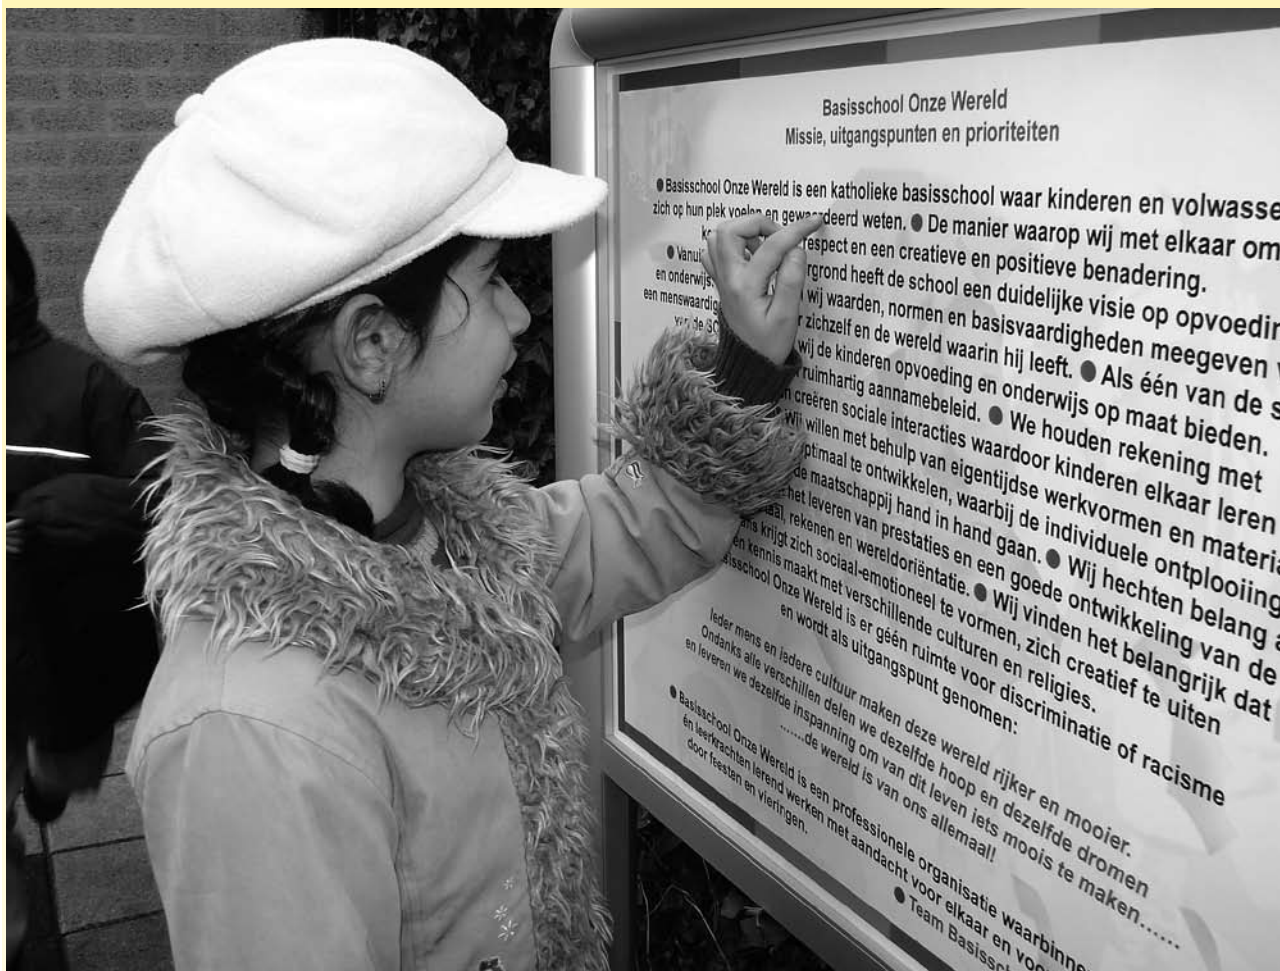 Basisschool Onze Wereld
Missie, uitgangspunten en prioriteiten
● Basisschool Onze Wereld is een katholieke basisschool waar kinderen en volwasse
zich op hun plek voelen en gewaardeerd weten. ● De manier waarop wij met elkaar om
respect en een creatieve en positieve benadering.
● Vanui rgrond heeft de school een duidelijke visie op opvoedin
en onderwijs. wij waarden, normen en basisvaardigheden meegeven v
een menswaardig r zichzelf en de wereld waarin hij leeft. ● Als één van de s
wij de kinderen opvoeding en onderwijs op maat bieden.
ruimhartig aannamebeleid. ● We houden rekening met
creëren sociale interacties waardoor kinderen elkaar leren
Wij willen met behulp van eigentijdse werkvormen en materia
optimaal te ontwikkelen, waarbij de individuele ontplooiing
de maatschappij hand in hand gaan. ● Wij hechten belang a
het leveren van prestaties en een goede ontwikkeling van de
taal, rekenen en wereldoriëntatie. ● Wij vinden het belangrijk dat
krijgt zich sociaal-emotioneel te vormen, zich creatief te uiten
en kennis maakt met verschillende culturen en religies.
sisschool Onze Wereld is er géén ruimte voor discriminatie of racisme
en wordt als uitgangspunt genomen:
Ieder mens en iedere cultuur maken deze wereld rijker en mooier.
Ondanks alle verschillen delen we dezelfde hoop en dezelfde dromen
en leveren we dezelfde inspanning om van dit leven iets moois te maken......
.......de wereld is van ons allemaal!
● Basisschool Onze Wereld is een professionele organisatie waarbinne
én leerkrachten lerend werken met aandacht voor elkaar en voo
door feesten en vieringen.
● Team Basissch